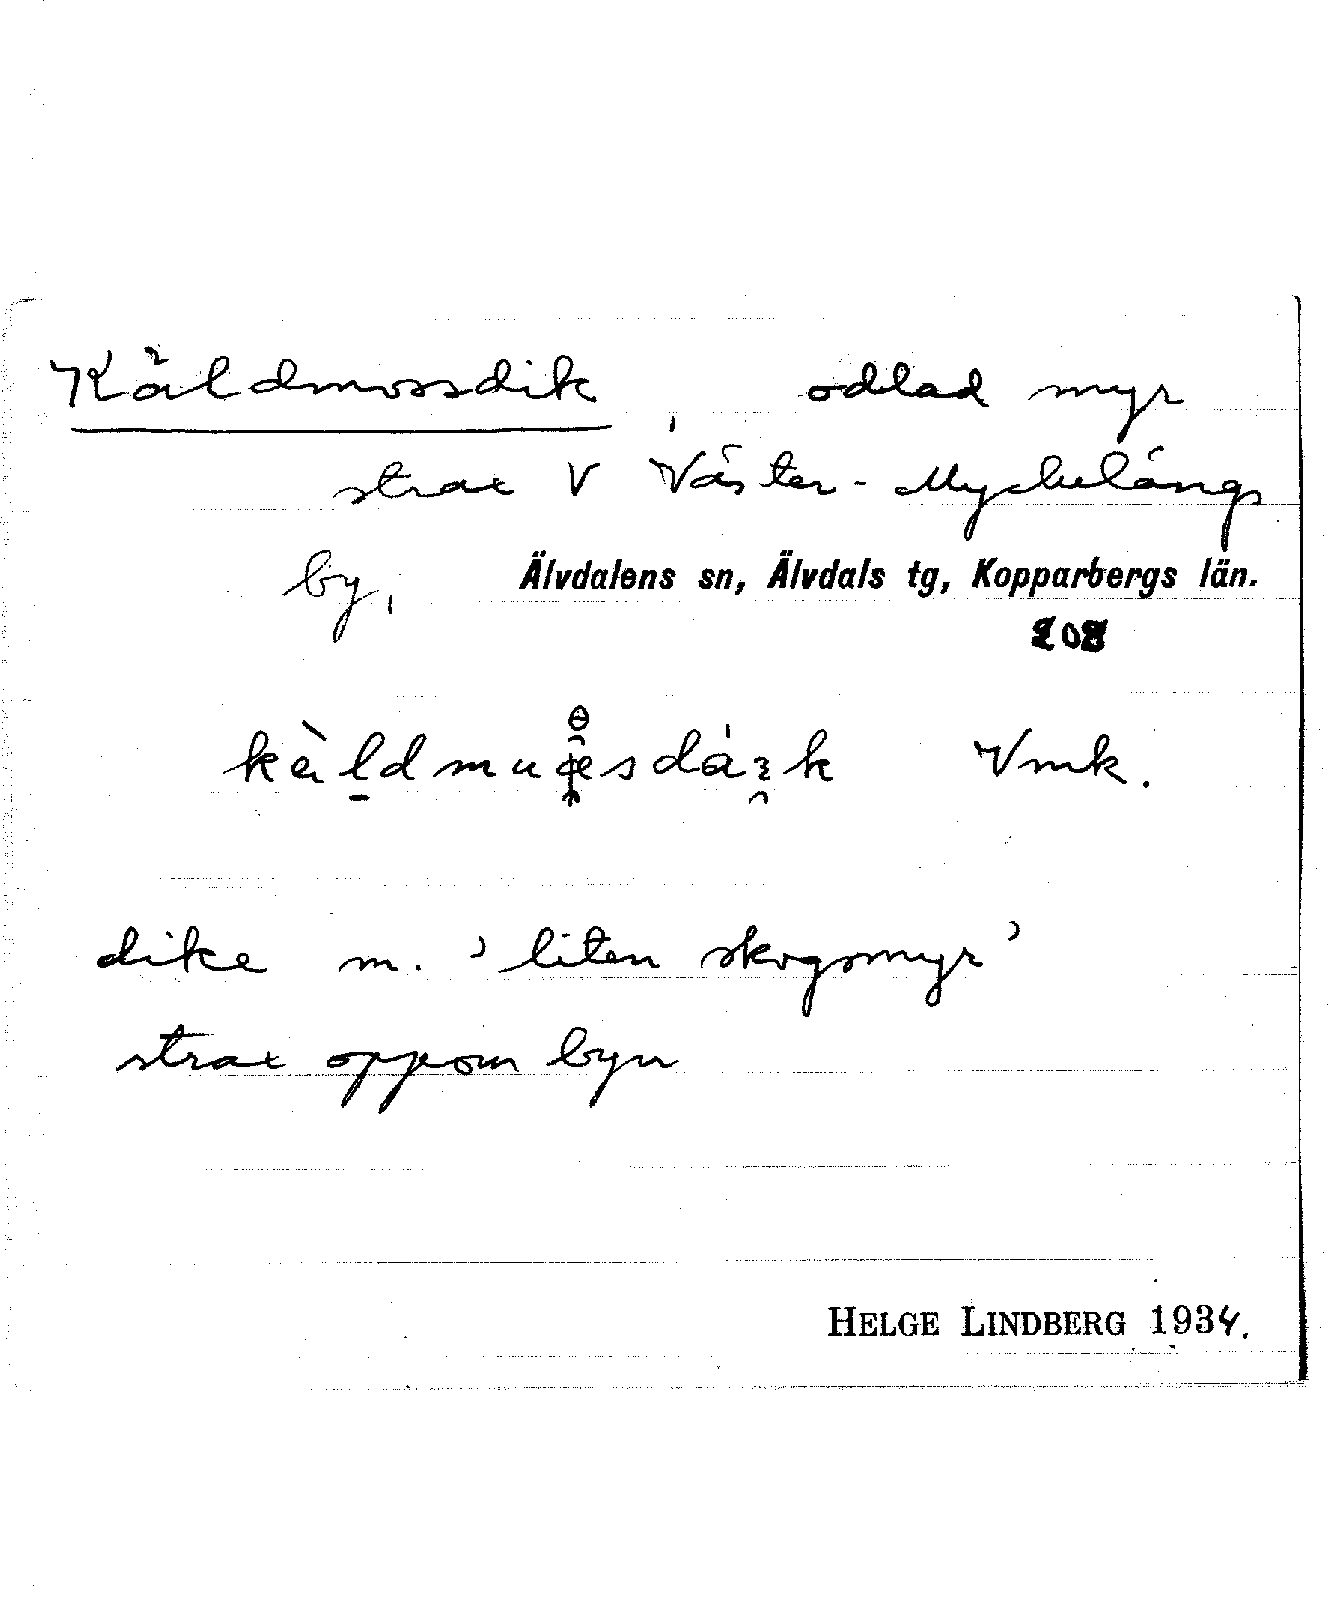 Källdmossdik, odlad myr
strax V Väster-Myckelängs
by, Älvdalens sn, Älvdals tg, Kopparbergs län.
Vmk.
dike m. 'liten skogsmyr'
strax oppom byn
HELGE LINDBERG 1934.